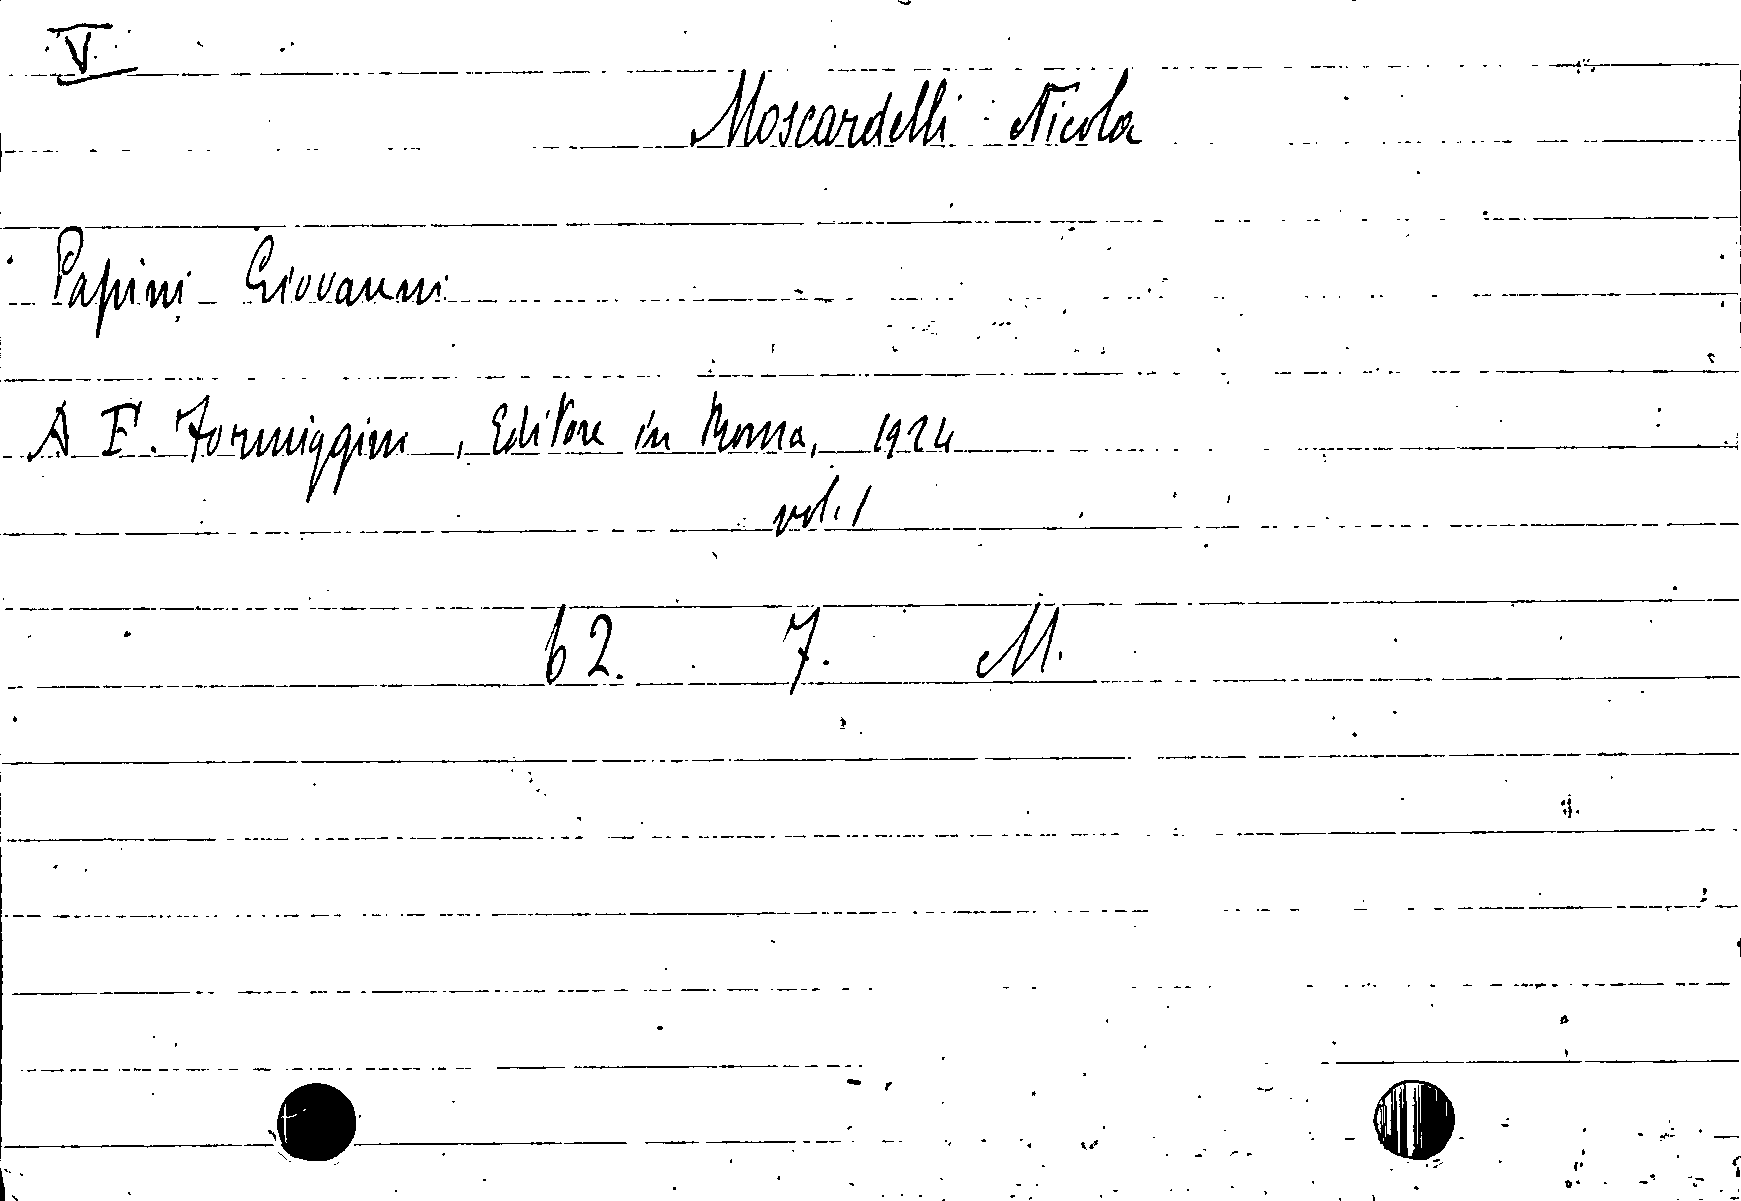 V.
Moscardelli Nicola
Papini Giovanni
A F. Formiggini, Editore in Roma, 1924
vol. 1
62. 7. M.